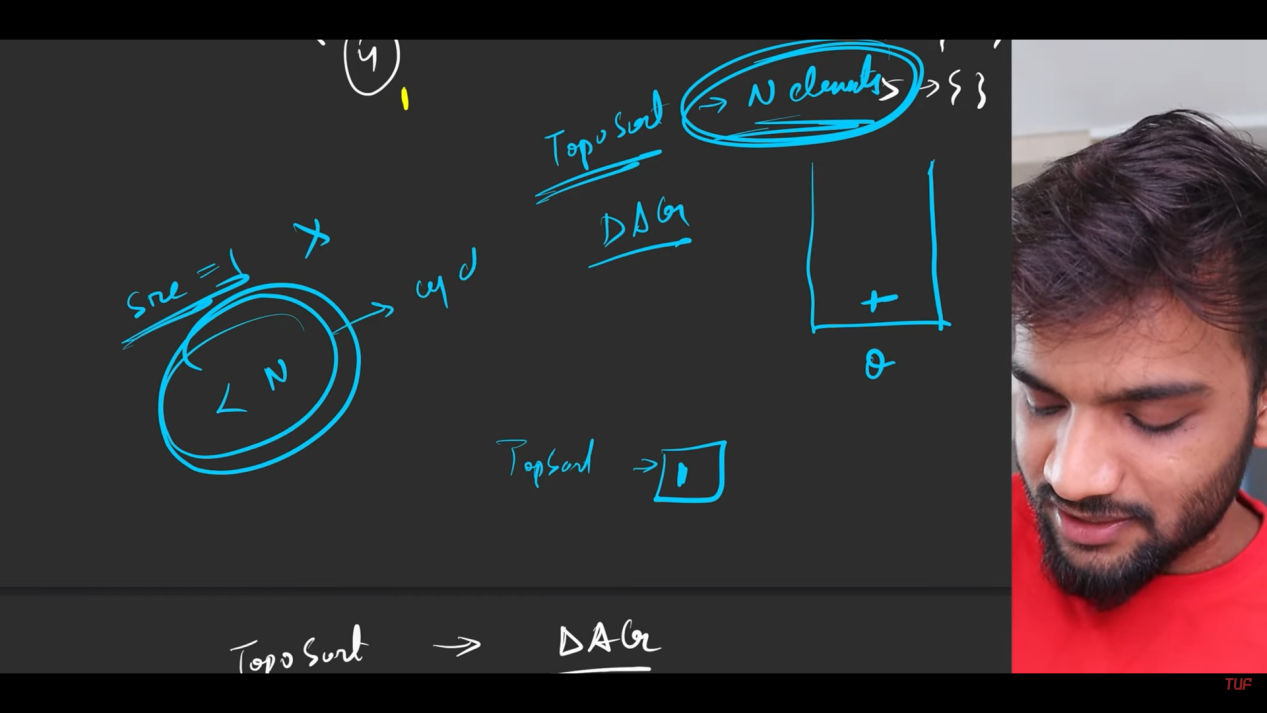 4
1
TopoSort → N elements
5 → { }
DAG
size = 1
X
< N → cycl
Q
TopSort → 1
TopoSort → DAG
TUF